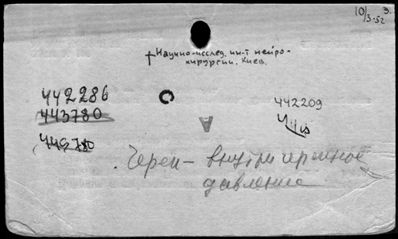 10/3-52 3.
†Научно-исслед. ин-т нейро-
хирургии. Киев.
442286
443780
442209
445780
А
Череп – внутричерепное
давление